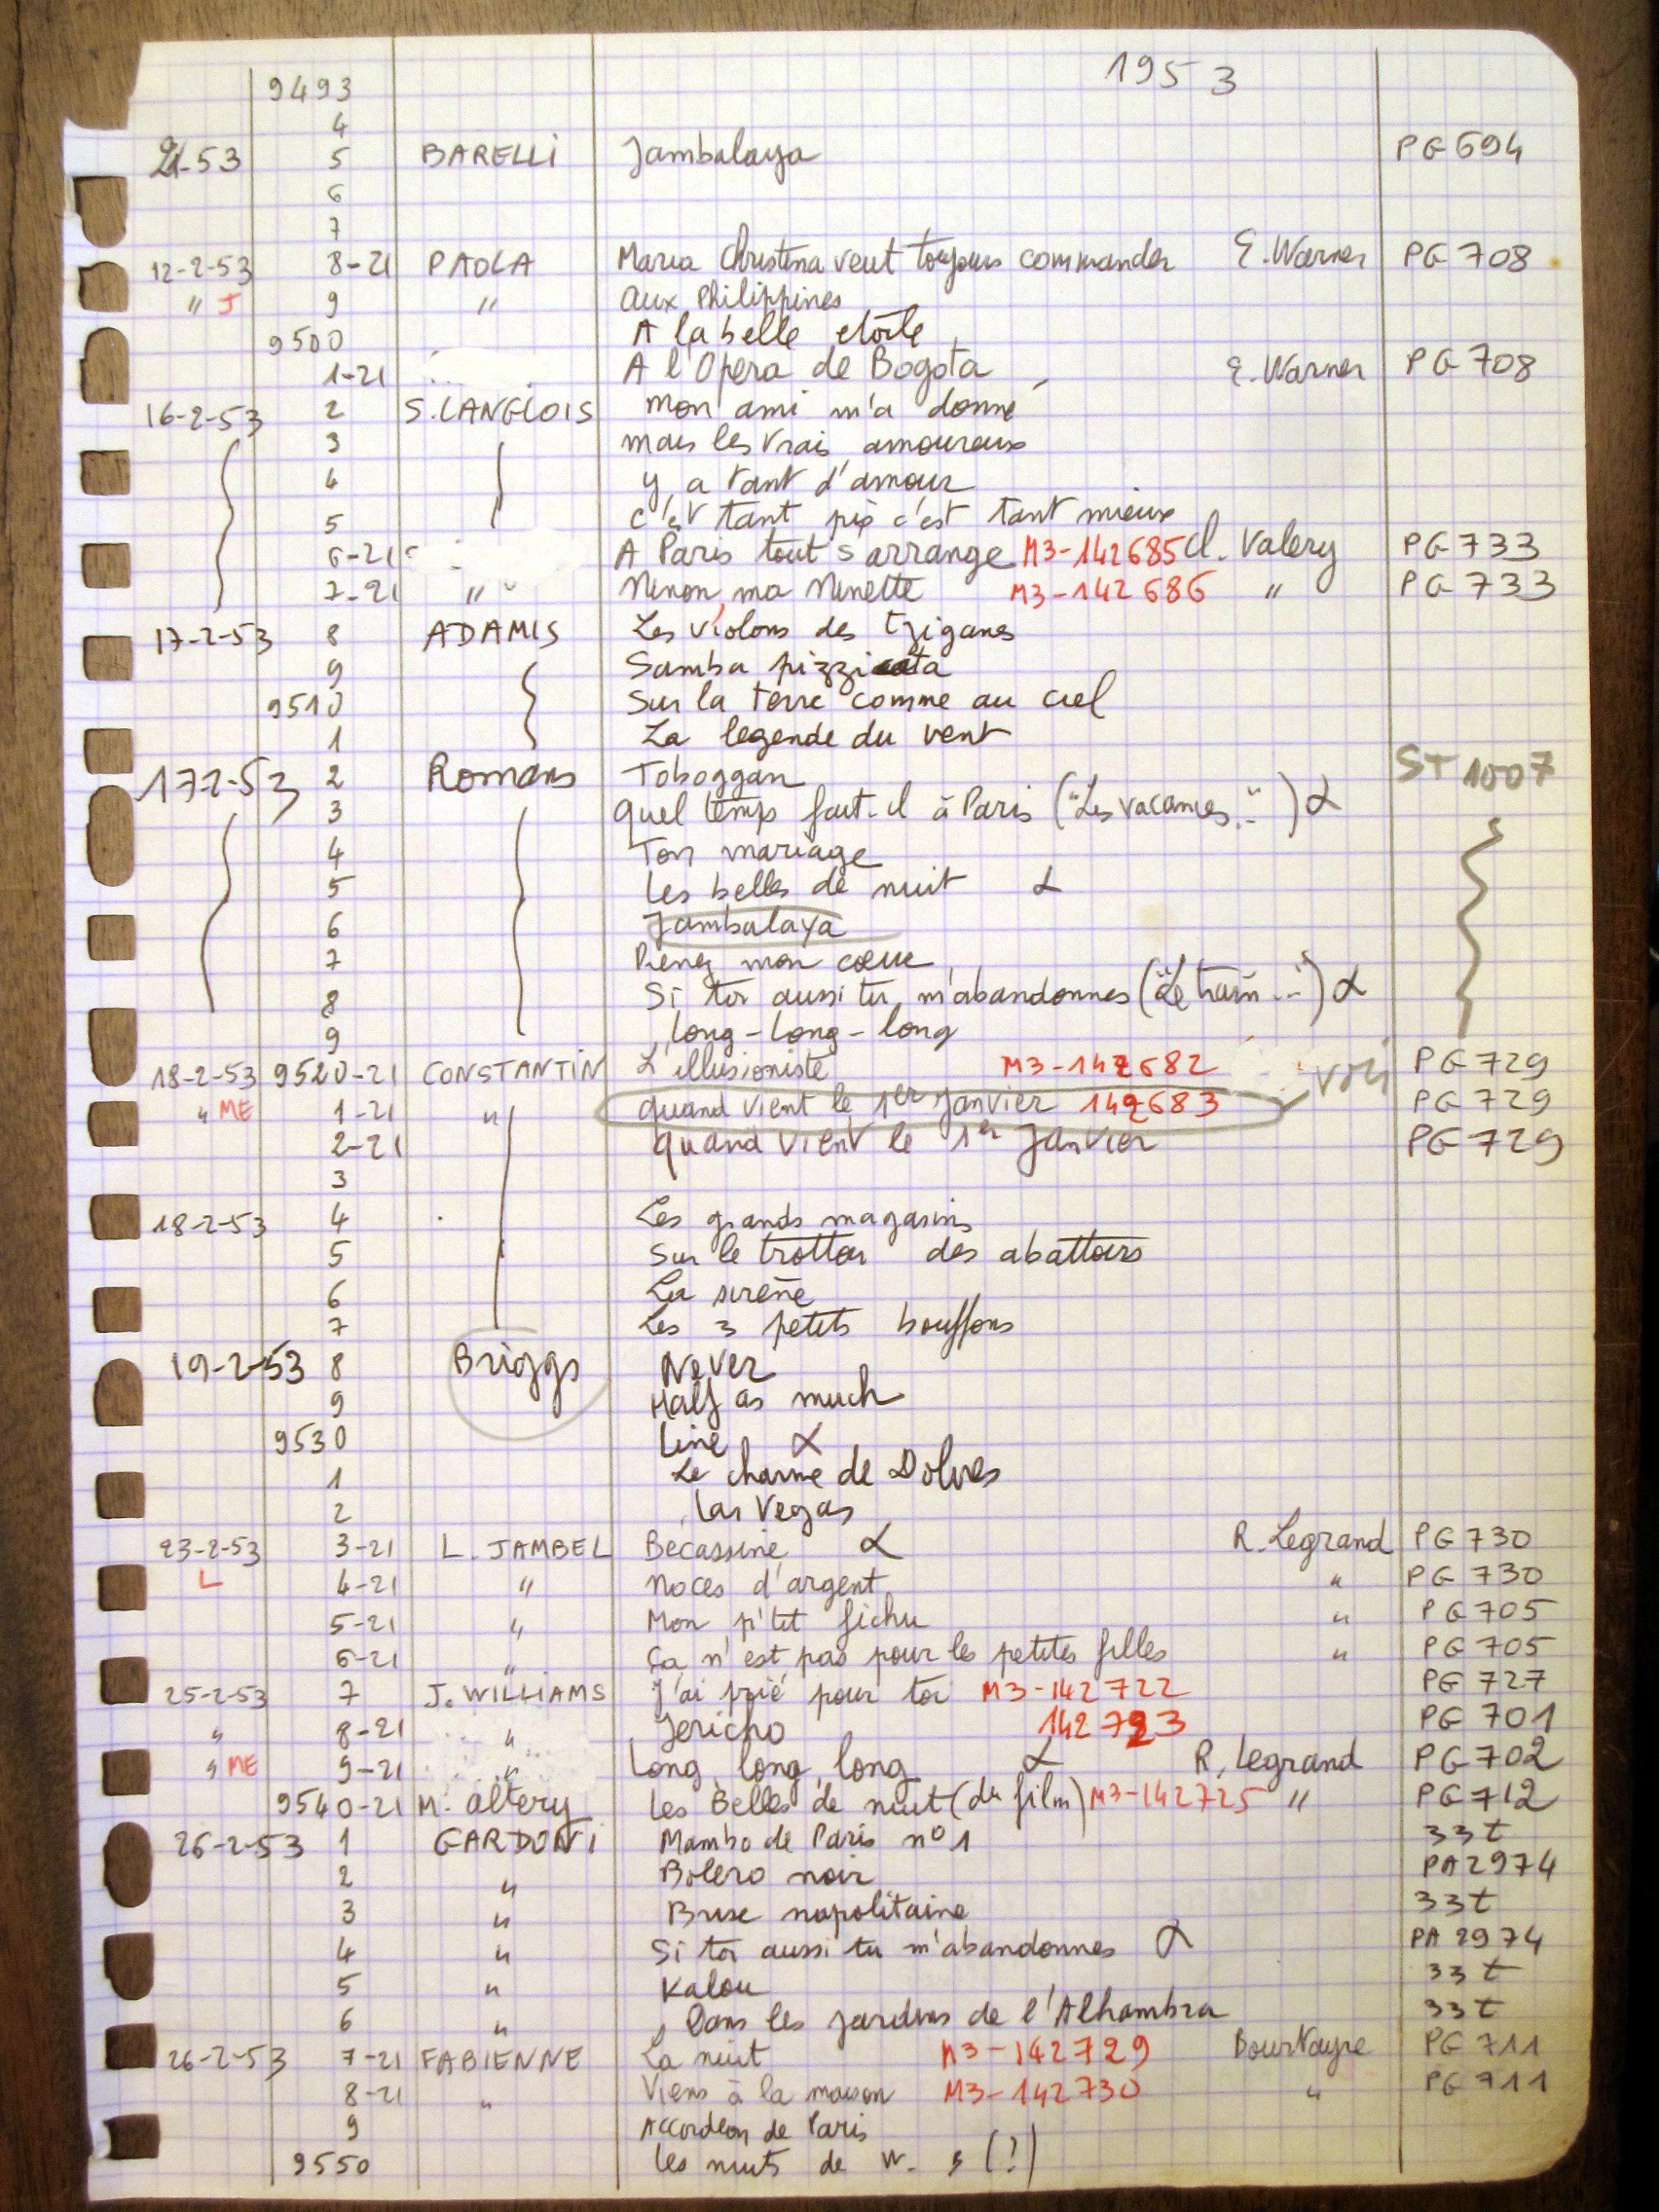 1953
9493
4
21-53 5 BARELLI Jambalaya PG 694
6
7
12-2-53 8-21 PAOLA Maria Christina veut toujours commander E. Warner PG 708
" J 9 " Aux Philippines
9500 A la belle etoile
1-21 A l'Opera de Bogota E. Warner PG 708
16-2-53 2 S. LANGLOIS Mon ami m'a donné
3 mais les vrais amoureux
4 y a tant d'amour
5 c'est tant pis c'est tant mieux
6-21 A Paris tout s'arrange M3-142685 Cl. Valery PG 733
7-21 " Ninon, ma Ninette M3-142686 " PG 733
17-2-53 8 ADAMIS Les violons des tziganes
9 Samba pizzicata
9510 Sur la terre comme au ciel
1 La legende du vent
17-2-53 2 Romans Toboggan ST 1007
3 Quel temps fait-il à Paris ("Les vacances..") α
4 Ton mariage
5 Les belles de nuit α
6 Jambalaya
7 Prenez mon cœur
8 Si toi aussi tu m'abandonnes ("Le train...") α
9 Long-Long-long
18-2-53 9520-21 CONSTANTIN L'illusioniste M3-142682 voir PG 729
" ME 1-21 " quand vient le 1er janvier 142683 PG 729
2-21 quand vient le 1er Janvier PG 729
3
18-2-53 4 Les grands magasins
5 Sur le trottoir des abattoirs
6 La sirène
7 Les 3 petits bouffons
19-2-53 8 Briggs Never
9 Half as much
9530 Line α
1 Le charme de Dolores
2 Las Vegas
23-2-53 3-21 L. JAMBEL Becassine α R. Legrand PG 730
L 4-21 " Noces d'argent " PG 730
5-21 " Mon p'tit fichu " PG 705
6-21 " Ça n'est pas pour les petites filles " PG 705
25-2-53 7 J. WILLIAMS J'ai prié pour toi M3-142722 PG 727
" 8-21 " Jericho 142723 PG 701
" ME 9-21 " Long, long, long α R. Legrand PG 702
9540-21 M. Altery Les Belles de nuit (du film) M3-142725 " PG 712
26-2-53 1 GARDONI Mambo de Paris n° 1 33t
2 " Bolero noir PA 2974
3 " Brise napolitaine 33t
4 " Si toi aussi tu m'abandonnes α PA 2974
5 " Kalou 33t
6 " Dans les jardins de l'Alhambra 33t
26-2-53 7-21 FABIENNE La nuit M3-142729 Bourtayre PG 711
8-21 " Viens à la maison M3-142730 " PG 711
9 Accordeon de Paris
9550 Les nuits de W. (!)